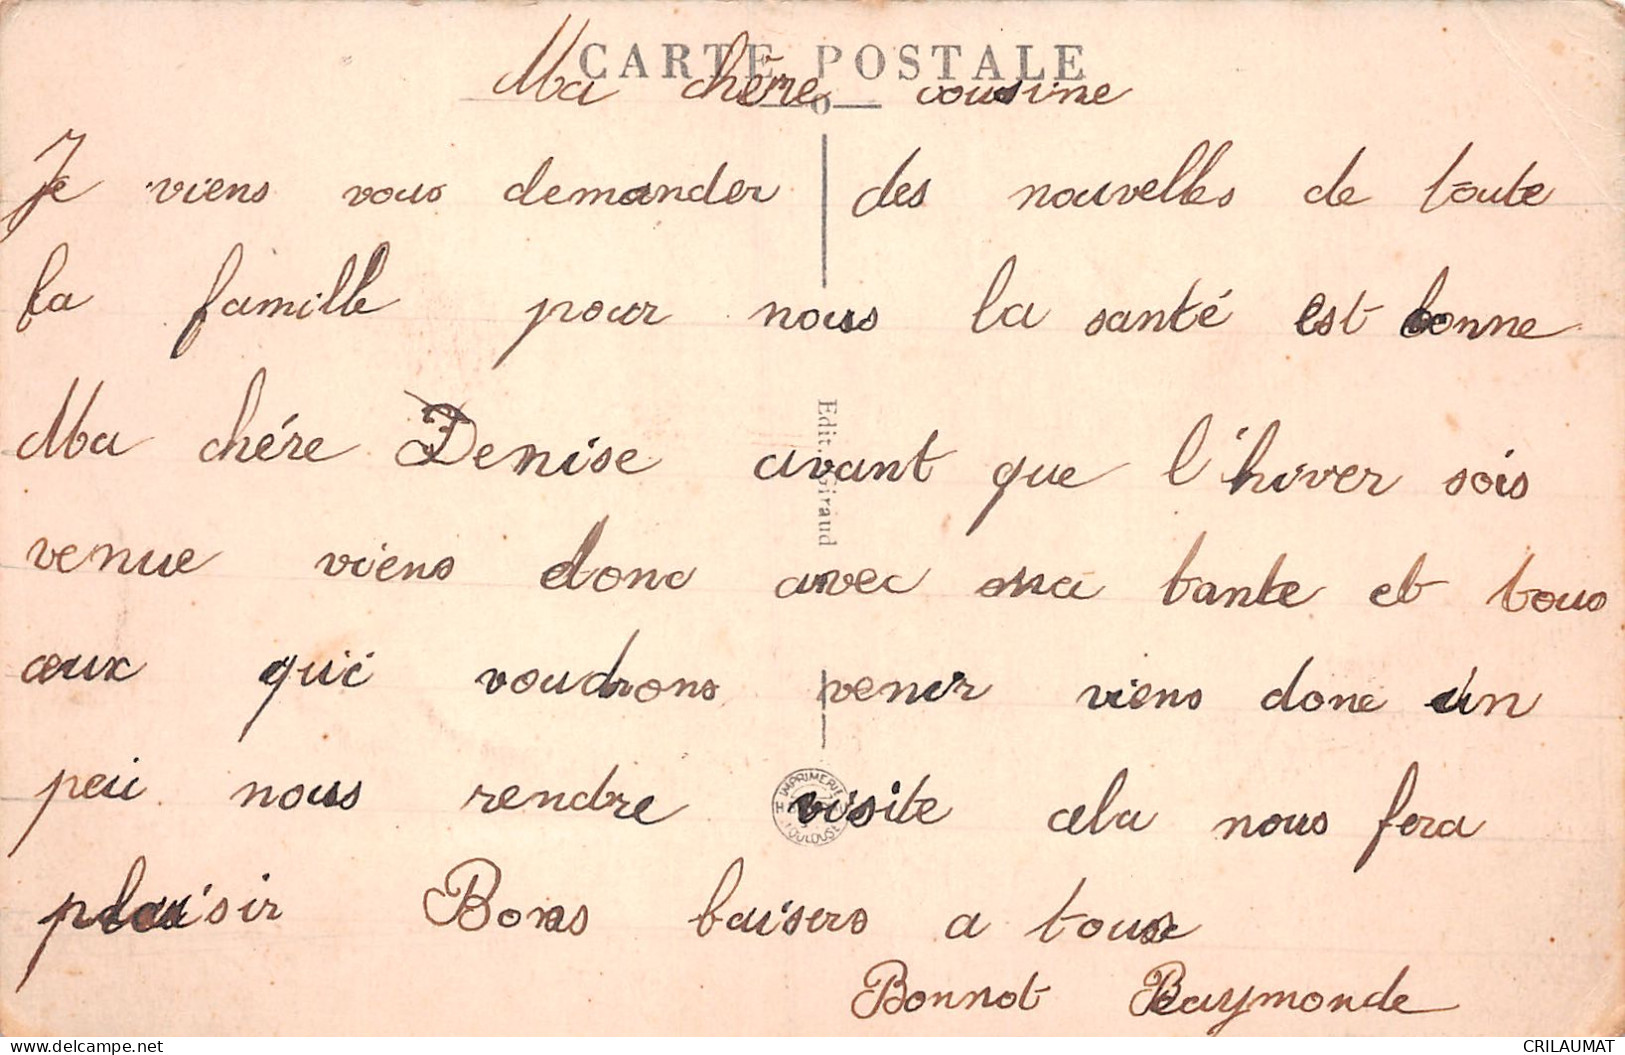 CARTE POSTALE
Ma chère cousine
Je viens vous demander des nouvelles de toute
la famille pour nous la santé est bonne
Ma chére Denise avant que l'hiver sois
venue viens donc avec ma tante et tous
ceux qui voudrons venir viens donc un
peu nous rendre visite cela nous fera
plaisir Bons baisers a tous
Bonnot Raymonde
Edit. Giraud
IMPRIMERIE TOULOUSE
CRILAUMAT